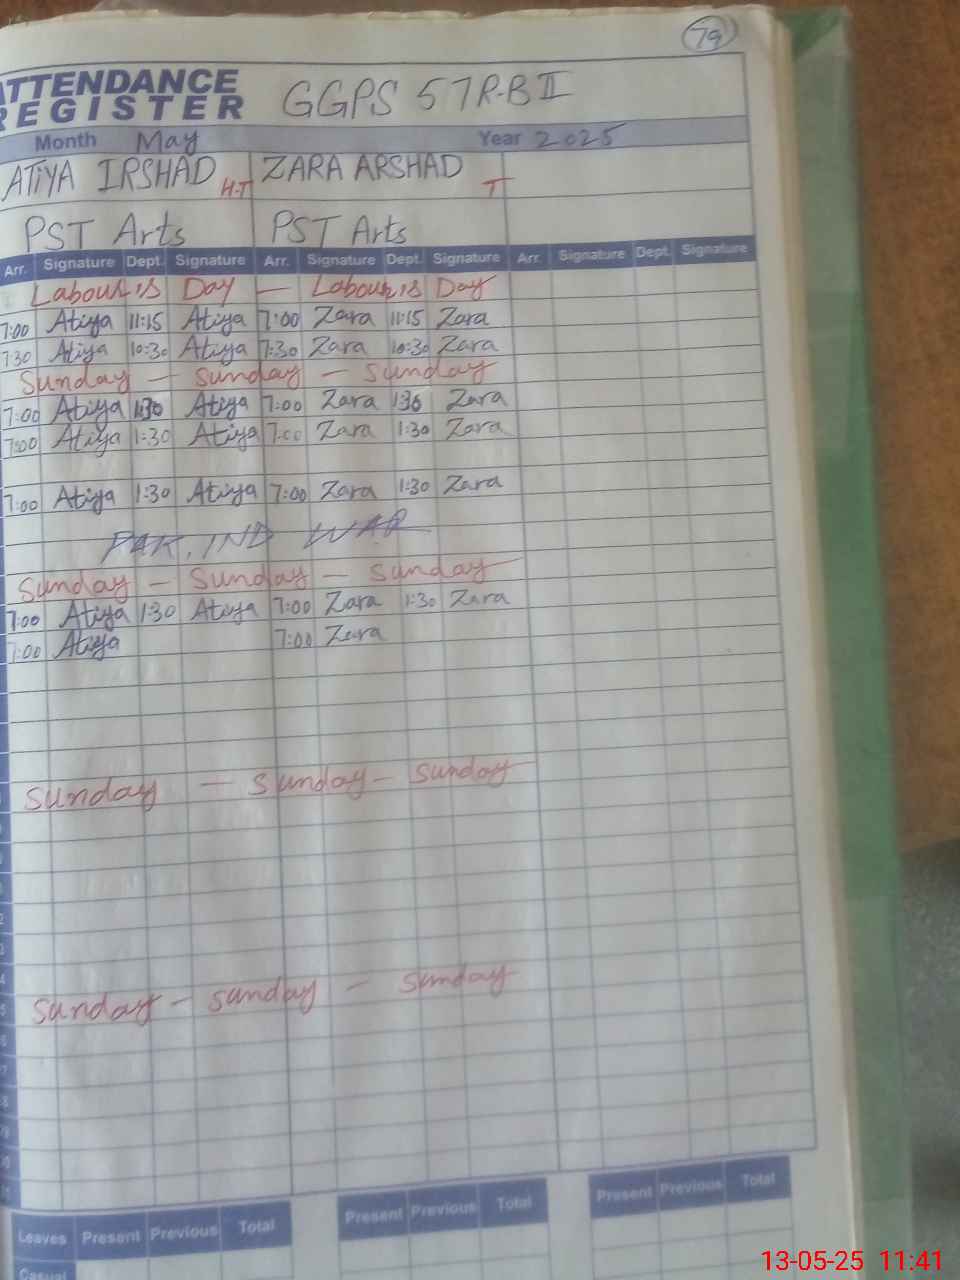 79
ATTENDANCE
REGISTER GGPS 57R-B II
Month May Year 2025
ATiYA IRSHAD H.T ZARA ARSHAD T
PST Arts PST Arts
Arr. Signature Dept. Signature Arr. Signature Dept. Signature Arr. Signature Dept. Signature
Labour,s Day — Labour,s Day
7:00 Atiya 11:15 Atiya 7:00 Zara 11:15 Zara
7:30 Atiya 10:30 Atiya 7:30 Zara 10:30 Zara
Sunday — Sunday — Sunday
7:00 Atiya 1:30 Atiya 7:00 Zara 1:30 Zara
7:00 Atiya 1:30 Atiya 7:00 Zara 1:30 Zara
7:00 Atiya 1:30 Atiya 7:00 Zara 1:30 Zara
PAK, IND WAR
Sunday — Sunday — Sunday
7:00 Atiya 1:30 Atiya 7:00 Zara 1:30 Zara
7:00 Atiya 7:00 Zara
Sunday — Sunday — Sunday
Sunday — Sunday — Sunday
Leaves Present Previous Total Present Previous Total Present Previous Total
Casual
13-05-25 11:41